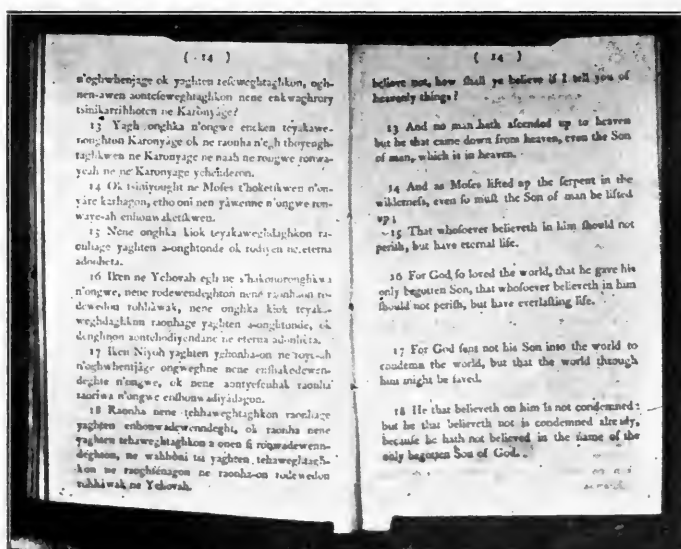 ( 14 )
n'oghwhenjage ok yaghten teſeweghtaghkon, ogh-
nen-awen aonteſeweghtaghkon nene enkwaghrory
tsinikarrihhoten ne Karonyage?
13 Yagh onghka n'ongwe eneken teyakawe-
nonghton Karonyage ok ne raonha n'egh thoyengh-
taghkwen ne Karonyage ne naah ne rongwe ronwa-
yeah ne ne Karonyage
14 Ok tsiniyought ne Moſes t'hoketſkwen n'on-
yare karhagon, etho oni nen yawenne n'ongwe ron-
waye-ah enhonwaketſkwen.
15 Nene onghka kiok teyakaweghdaghkon ra-
onhage yaghten a-onghtonde ok rodiyen ne eterna
adonheta.
16 Iken ne Yehovah egh ne s'hakonoronghkwa
n'ongwe, nene rodewendeghton nene raonha-on ro-
dewedon rohhàwak, nene onghka kiok teyaka-
weghdaghkon raonhage yaghten a-onghtonde, ok
denghnon aontehodiyendane ne eterna adonheta.
17 Iken Niyoh yaghten
n'oghwhentjage ongweghne nene enſhakodewen-
deghte n'ongwe, ok nene raonha
raoriwa n'ongwe
18 Raonha nene tehhaweghtaghkon raonhage
yaghten enhonwadewenndeght, ok raonha nene
yaghten tehaweghtaghkon a onen ſi ronwadewenn-
deghton, ne wahhòni tsi yaghten tehaweghtagh-
kon ne raoghſénagon ne raonha-on rodewedon
rohhàwak ne Yehovah.
( 14 )
believe not, how ſhall ye believe if I tell you of
heavenly things?
13 And no man hath aſcended up to heaven
but he that came down from heaven, even the Son
of man, which is in heaven.
14 And as Moſes lifted up the ſerpent in the
wilderneſs, even ſo muſt the Son of man be lifted
up;
15 That whoſoever believeth in him ſhould not
periſh, but have eternal life.
16 For God ſo loved the world, that he gave his
only begotten Son, that whoſoever believeth in him
ſhould not periſh, but have everlaſting life.
17 For God ſent not his Son into the world to
condemn the world, but that the world through
him might be ſaved.
18 He that believeth on him is not condemned:
but he that believeth not is condemned already,
becauſe he hath not believed in the name of the
only begotten Son of God.